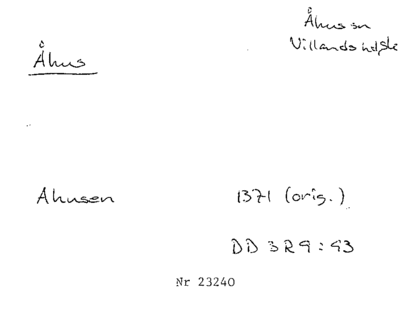 Åhus sn
Villands hd Sk
Åhus
Ahusen 1371 (orig.)
DD 3 R 9 : 93
Nr 23240